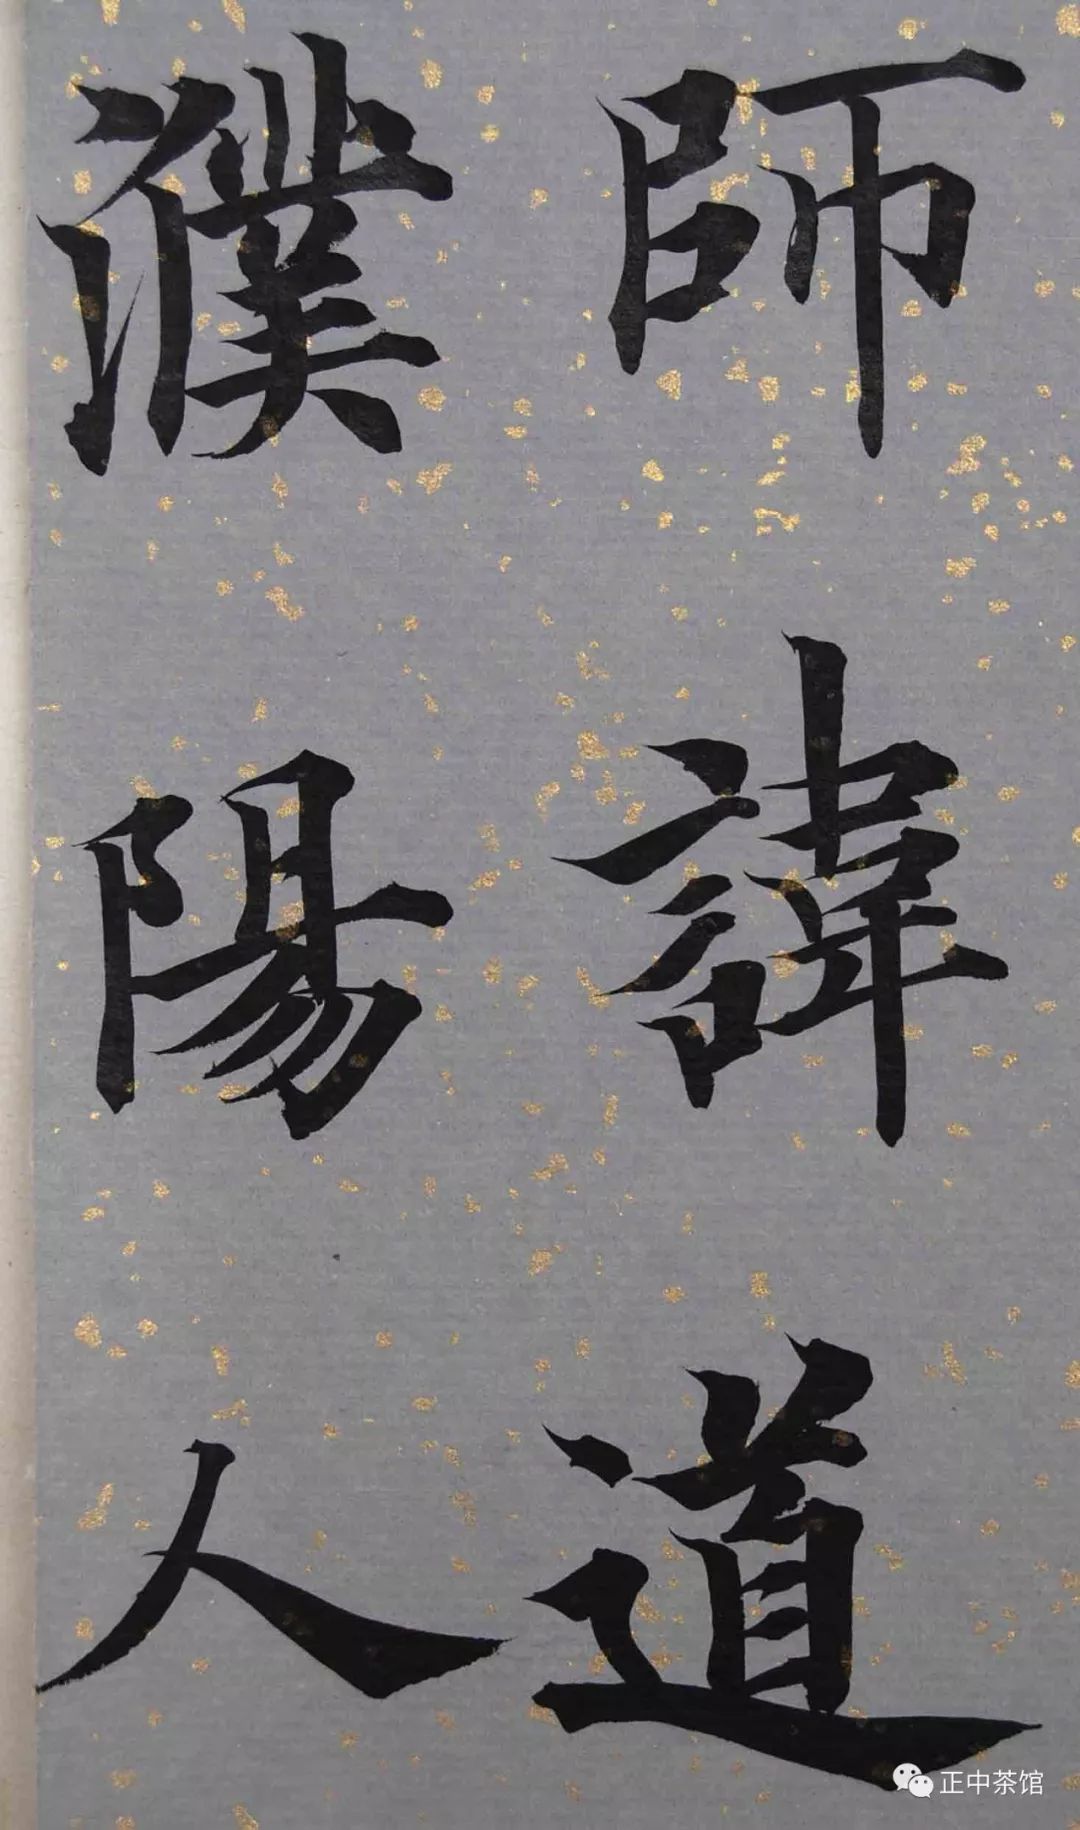 師諱道
濮陽人
正中茶馆